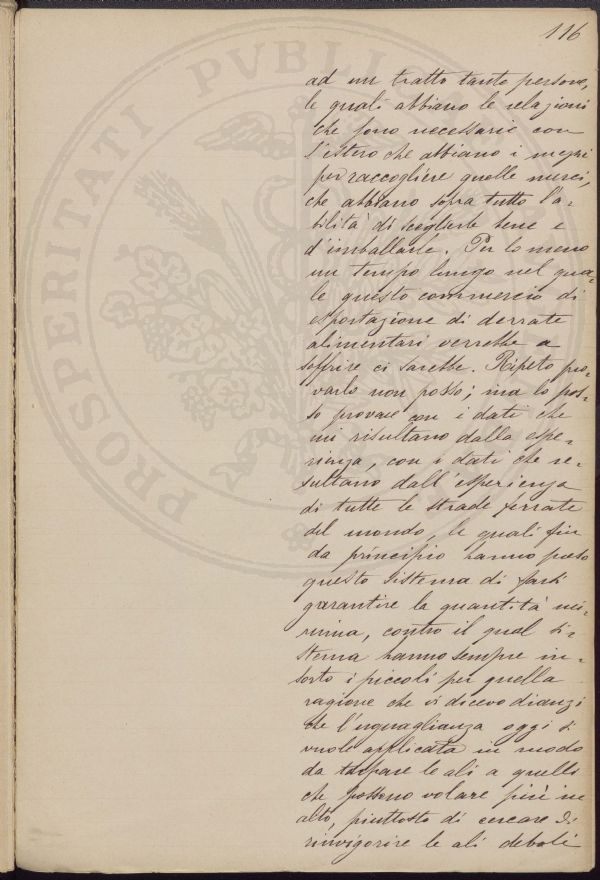 116
PROSPERITATI PVBLICAE
ad un tratto tante persone,
le quali abbiano le relazioni
che sono necessarie con
l'estero che abbiano i mezzi
per raccogliere quelle merci,
che abbiano sopra tutto l'a-
bilità di sceglierle bene e
d'imballarle. Per lo meno
un tempo lungo nel qua-
le questo commercio di
esportazione di derrate
alimentari verrebbe a
soffrire ci sarebbe. Ripeto pro-
varlo non posso; ma lo pos-
so provare con i dati che
mi risultano dalla espe-
rienza, con i dati che re-
sultano dall'esperienza
di tutte le strade ferrate
del mondo, le quali fin
da principio hanno preso
questo sistema di farsi
garantire la quantità mi-
nima, contro il qual si-
stema hanno sempre in-
sorto i piccoli per quella
ragione che vi dicevo dianzi
che l'uguaglianza oggi si
vuole applicata in modo
da tarpare le ali a quelli
che possono volare più in
alto, piuttosto di cercare di
rinvigorire le ali deboli